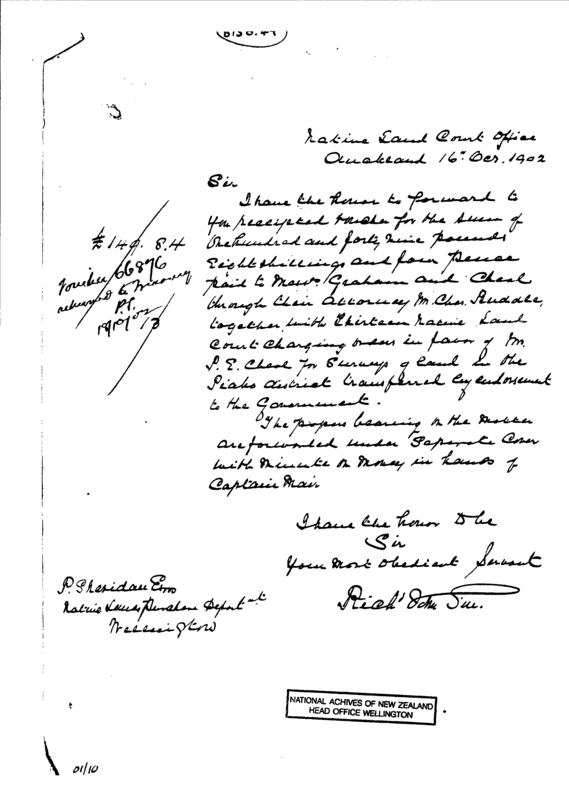 Native Land Court Office
Auckland 16th Oct. 1902
Sir
I have the honor to forward to
you receipted voucher for the sum of
One hundred and forty nine pounds
Eight shillings and four pence
paid to Messrs Graham and Cheal
through their Attorney Mr Chas.
together with Thirteen Native Land
Court Charging orders in favor of Mr.
P. E. Cheal for Surveys of land in the
Piako district transferred by endorsement
to the Government.
The papers bearing on the matter
are forwarded under Separate Cover
with Minute on Money in hands of
Captain Mair
£149. 8. 4
Voucher 66876
returned to Treasury
I have the honor to be
Sir
Your Most Obedient Servant
Richd John
P. Sheridan Esqre
Native Land Purchase Departmt
Wellington
NATIONAL ACHIVES OF NEW ZEALAND
HEAD OFFICE WELLINGTON
01/10